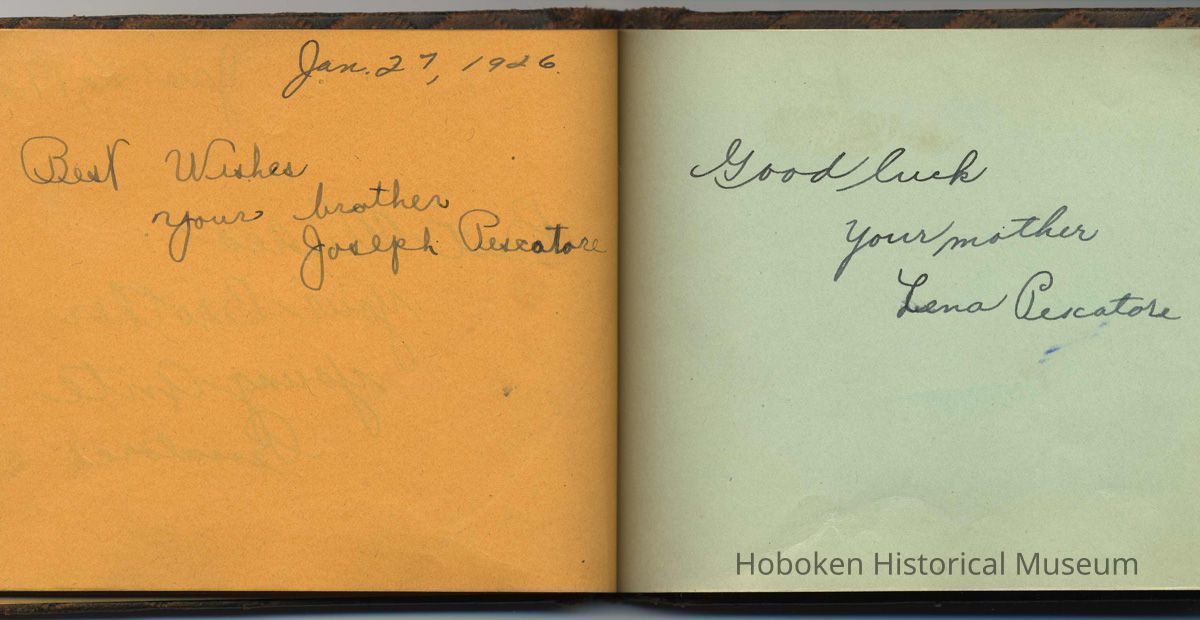 Jan. 27, 1926.
Best Wishes
your brother
Joseph Pescatore
Good luck
Your mother
Lena Pescatore
Hoboken Historical Museum